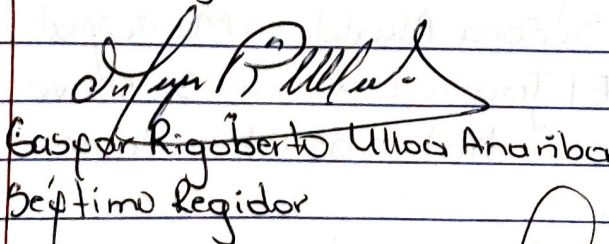 Gaspar Rigoberto Ulloa Anariba
Séptimo Regidor